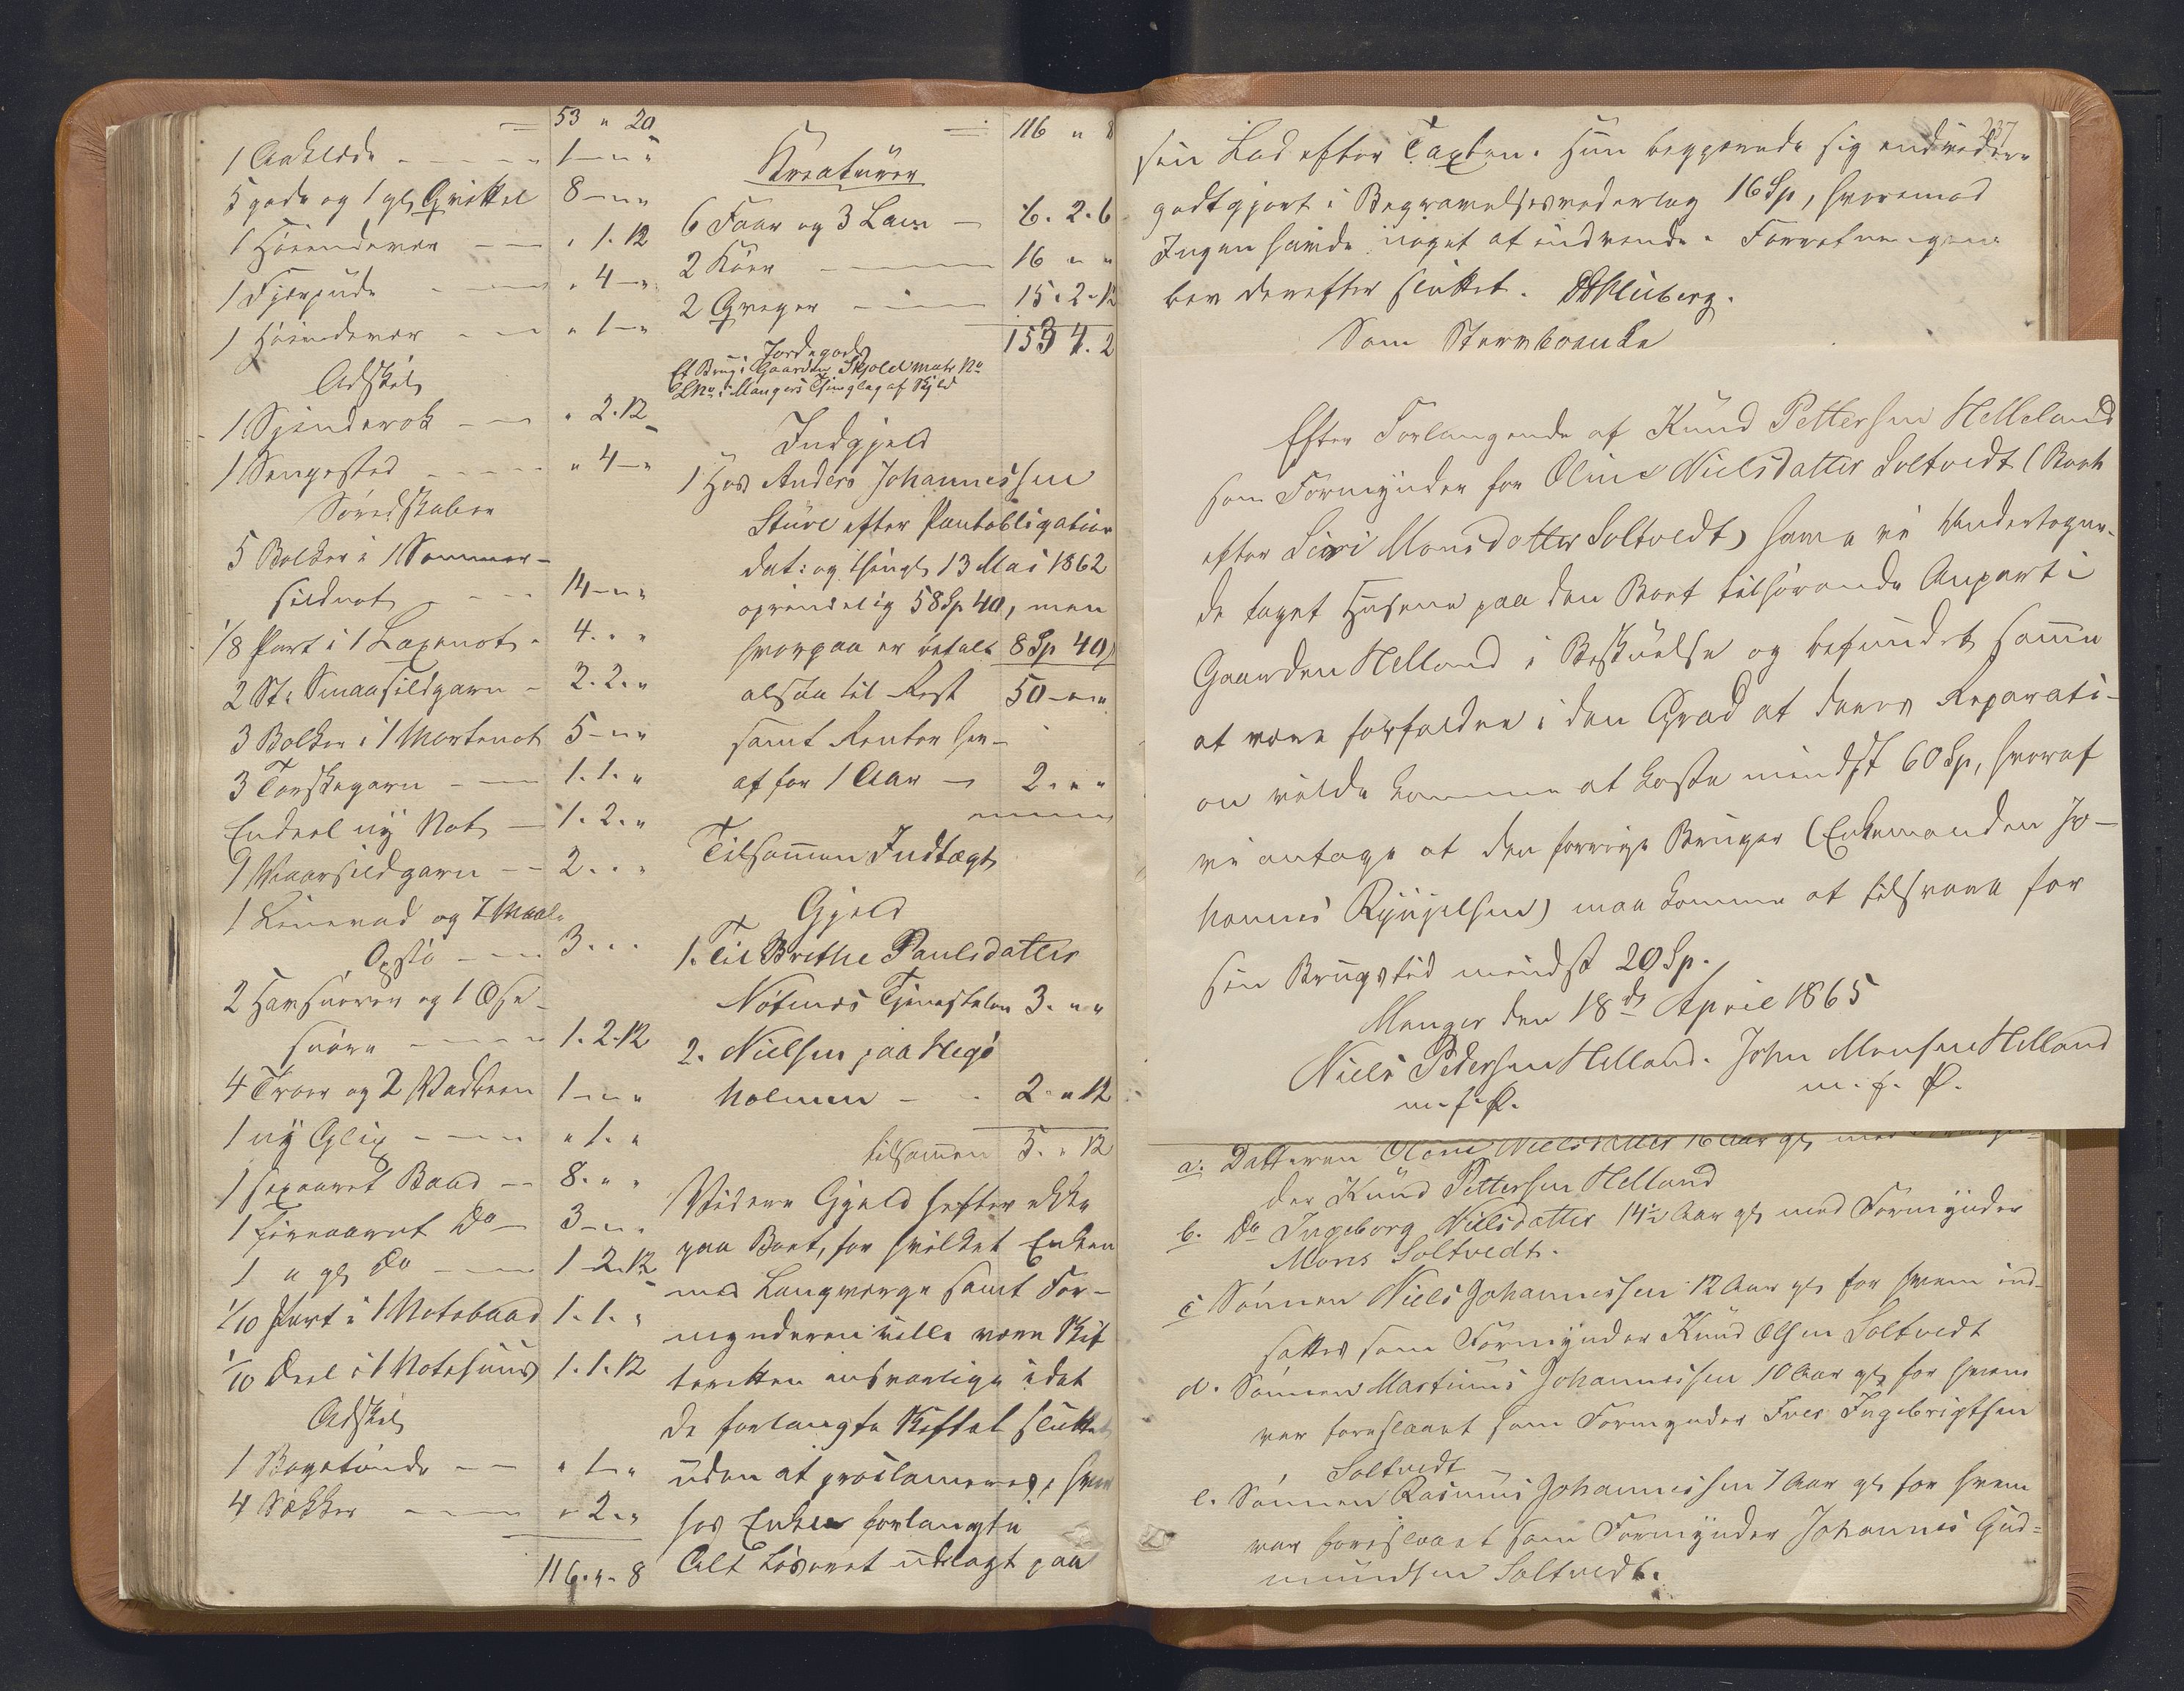 = 53 " 20
1 Aaklæde - - - 1 - " "
5 gode og 1 gl. Qvittel 8 - " "
1 Høiendevær - - " 1. 12
1 Fjærpude - - " 4 - "
1 Høiendevær - - " 1 - "
Adskil.
1 Spinderok - - " 2. 12
1 Sengested - - - " 4 - "
Søredskaber
5 Bolker i 1 Sommer-
sildnot - - - 14 - " "
1/8 Part i 1 Laxenot - 4. " "
2 St. Smaasildgarn - 2. 2. "
3 Bolker i 1 Mortenot 5 - " "
3 Torskegarn - - 1. 1. "
Endeel ny Not - 1. 2. "
9 Vaarsildgarn - - 2. . "
1 Linevad og 7 Maal
Opstø - - 3. . .
2 Havsnører og 1
snøre - - - 1. 2. 12
4 Troer og 2 Vadbeen 1 - " "
1 ny Glip - - - " 1. "
1 sexaaret Baad - - 8. " "
1 fireaaret Do - 3 - " "
1 " gl. Do - - 1 - 2. 12
1/10 Part i 1 Notebaad 1. 1. "
1/10 Deel i 1 Notehuus 1. 1. 12
Adskil.
1 Bagetønde - - " 1 - "
4 Sækker - - - " 2. "
116. " - 8
= 116 " 8
Kreaturer
6 Faar og 3 Lam - 6. 2. 6
2 Køer - - - 16 " "
2 Qveger - - 15. 2. 12
153 4. 2
Jordegods
Et Brug i Gaarden Skjold matr No
L No i Mangers Thinglag af Skyld
Indgjeld
1 Hos Anders Johannessen
Sture efter Pantobligation
dat: og thingl. 13 Mai 1862
oprindelig 58 Sp 40, men
hvorpaa er betalt 8 Sp 40,
altsaa til Rest 50 - " "
samt Renter her-
af for 1 Aar - 2. " "
Tilsammen Indtægt
Gjeld
1. Til Brithe Paulsdatter
Nøtnæs Tjenesteløn 3. " "
2. Nielsen paa Hegø
holmen - - 2. " 12
tilsammen 5. " 12
Videre Gjeld hefter ikke
paa Boet, for hvilket Enken
med Laugværge samt For-
mynderen ville være Skif
teretten ansvarlige idet
de forlangte Skiftet sluttet
uden at proclameres, hvor
hos Enken forlangte
Alt Løsøret udlagt paa
237
sin Lod efter Taxten. Hun begjærede sig endvidere
godtgjort i Begravelsesvederlag 16 Sp, hvorimod
Ingen havde noget at indvende. Forretningen
blev derefter sluttet.
Som Stervboenke
Efter Forlangende af Knud Pettersen Helleland
som Formynder for Oline Nielsdatter Soltvedt (Barn
efter Siri Monsdatter Soltvedt) have vi Undertegne-
de taget Husene paa den Boet tilhørende Anpart i
Gaarden Helland i Beskuelse og befundet samme
at være forfalden i den Grad at deres Reparati-
on vilde komme at koste mindst 60 Sp, hvoraf
vi antage at den forrige Bruger (Enkemanden Jo-
hannes Rynjelsen) maa komme at tilsvare for
sin Brugstid mindst 20 Sp.
Manger den 18de April 1865
Niels Pedersen Helland. John Monsen Helland
m. f. P. m. f. P.
a. Datteren Oline Nielsdatter 16 Aar gl. med Formyn-
der Knud Pettersen Helland
b. Do Ingeborg Nielsdatter 14½ Aar gl. med Formynder
Mons Soltvedt.
c Sønnen Niels Johannessen 12 Aar gl. for hvem ind-
sattes som Formynder Knud Olsen Soltvedt
d. Sønnen Martinus Johannessen 10 Aar gl. for hvem
var foreslaaet som Formynder Iver Ingebrigtsen
Soltvedt
e. Sønnen Rasmus Johannessen 7 Aar gl. for hvem
var foreslaaet som Formynder Johannes Gud=
mundsen Soltvedt.